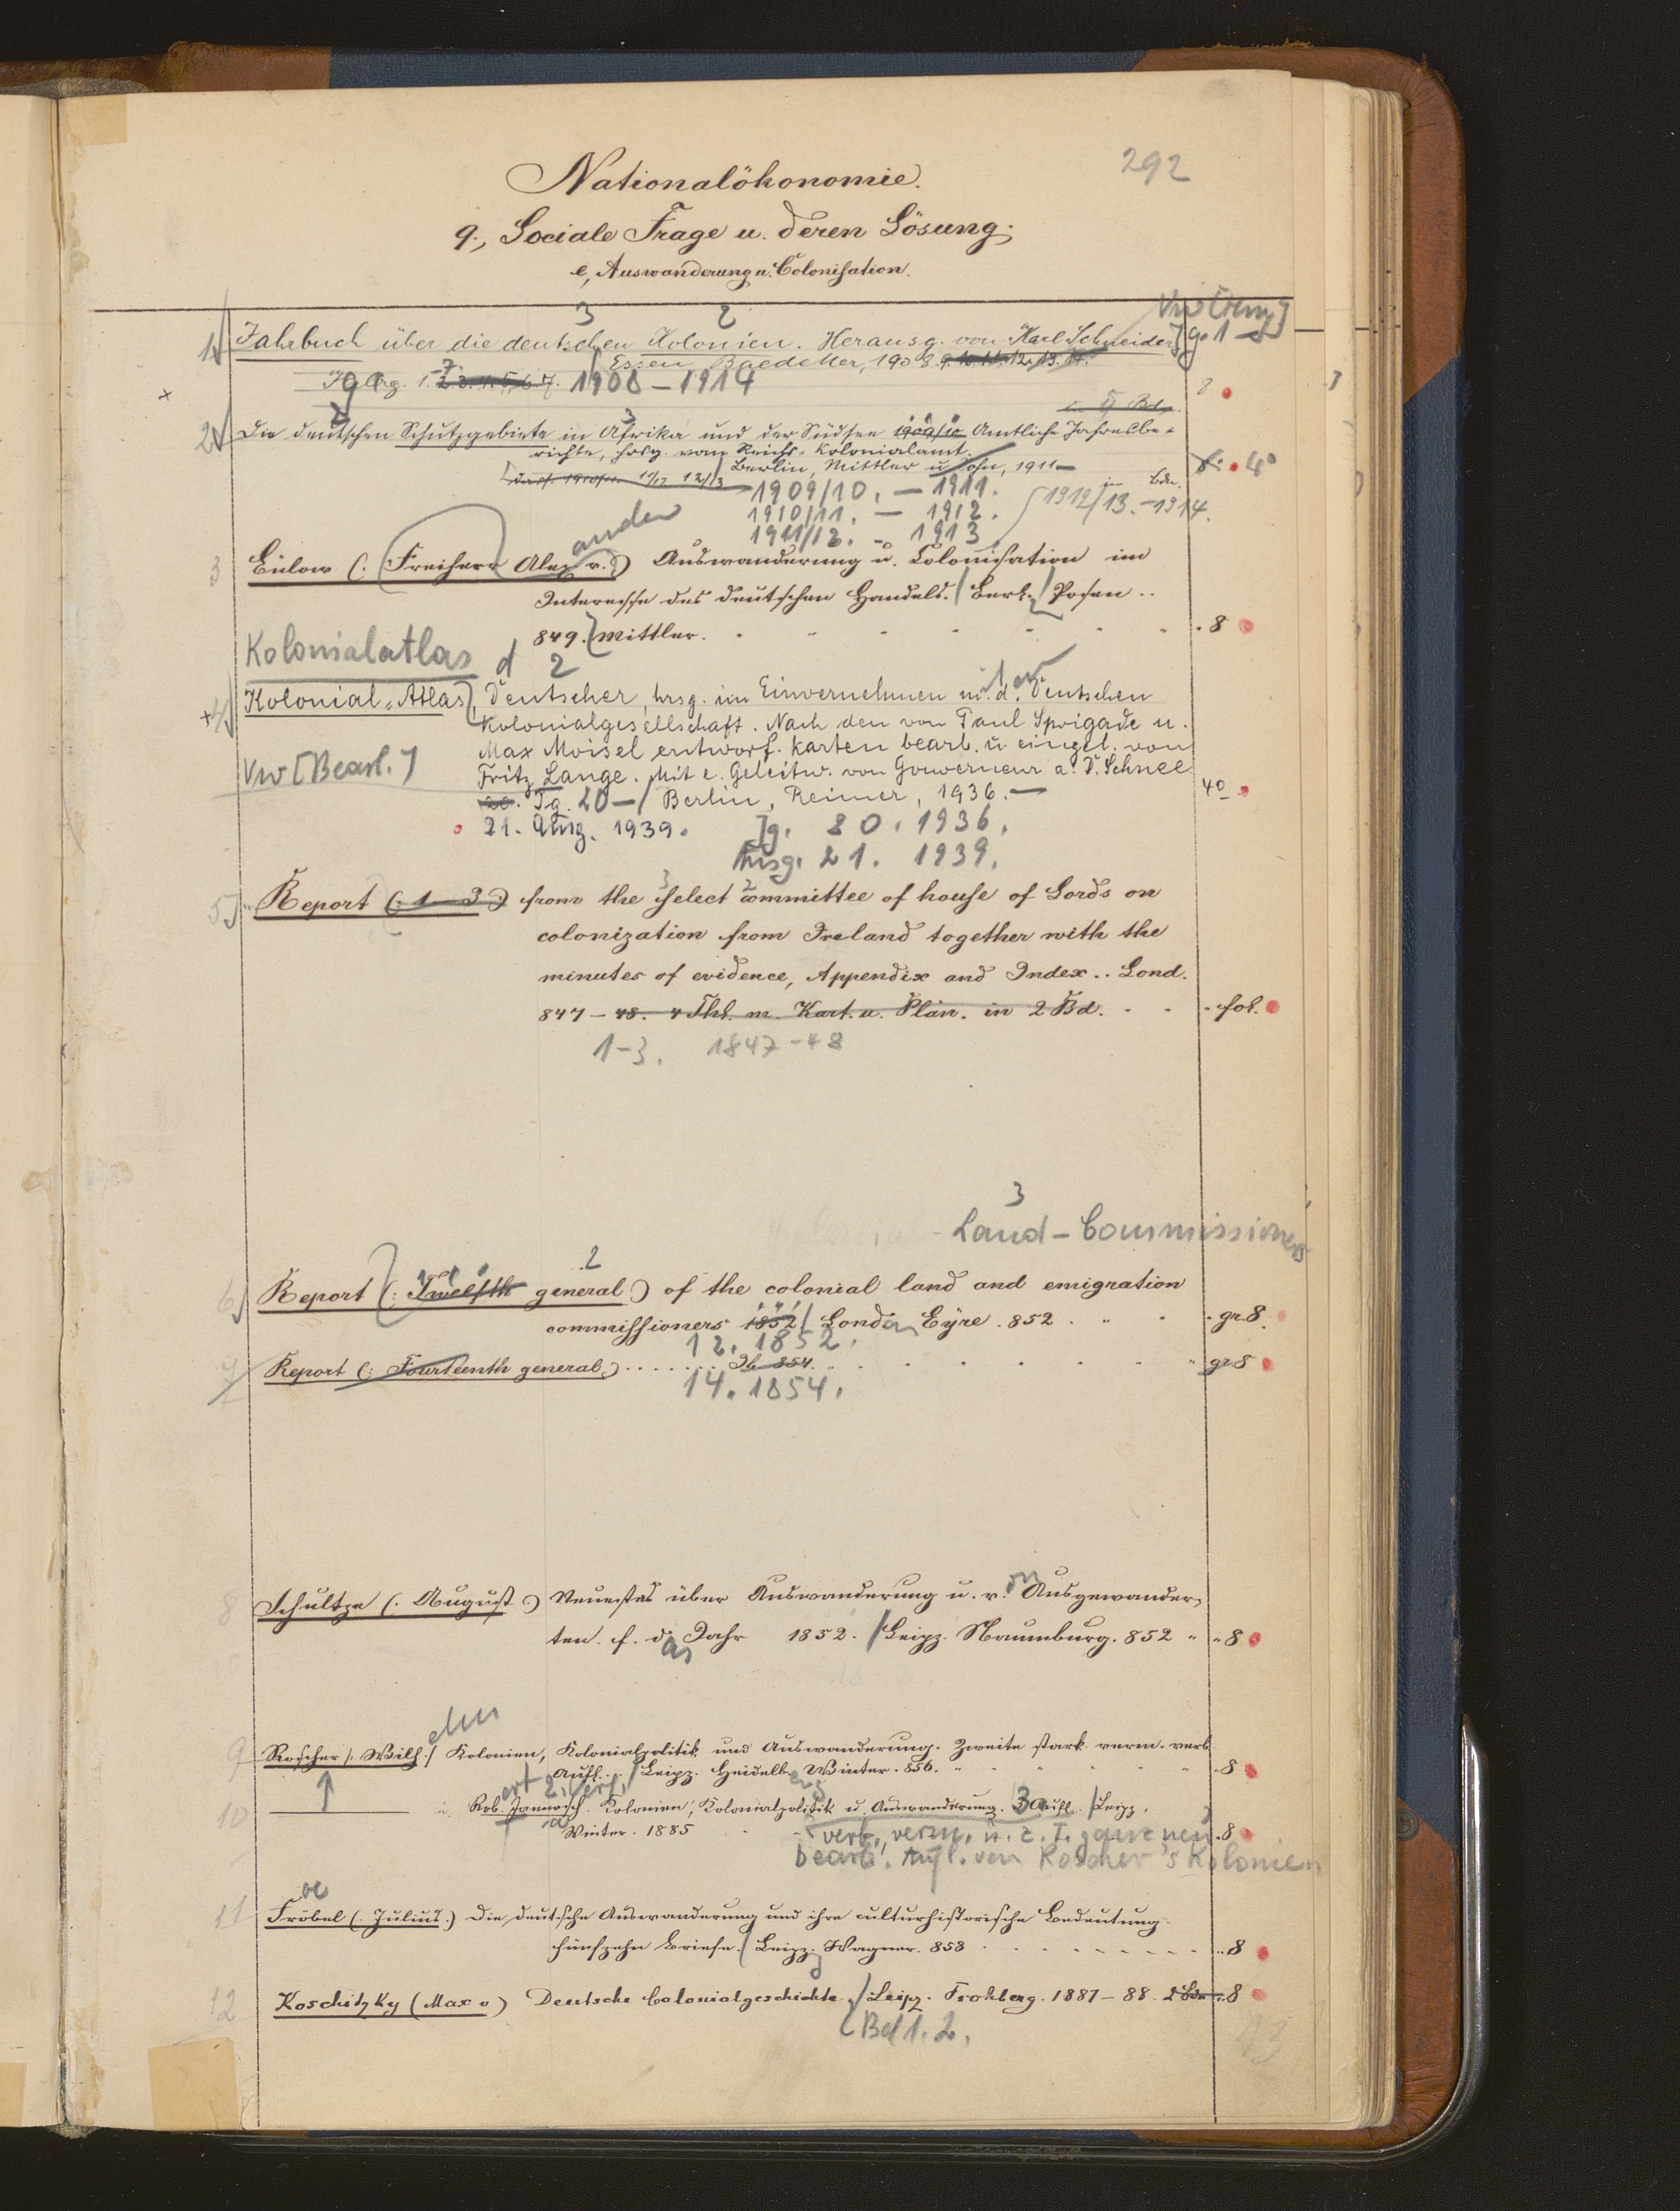 292
Nationalökonomie.
9., Sociale Frage u. deren Lösung.
e, Auswanderung u. Colonisation.
3 2
1 Jahrbuch über die deutschen Kolonien. Herausg. von Karl Schneider Jg. 1
Essen, Baedeker, 1908. 9. 10. 11. 12. 13. 14.
Jg 1. 2. 3. 4. 5. 6. 7. 1908 – 1914 8
5 Bd.
2 Die deutschen Schutzgebiete in Afrika und der Südsee 1909/10 Amtliche Jahresbe-
richte, hrsg. vom Reichs-Kolonialamt.
Berlin, Mittler u. Sohn, 1911– 4°
1910/11. 11/12 12/13 1909/10. – 1911.
1910/11. – 1912. 1912/13. – 1914.
1911/12. – 1913
ander
3 Bülow (: Freiherr Alex v. :) Auswanderung u. Colonisation im
Interesse des deutschen Handels. Berl. Posen ..
849. Mittler. 8
Kolonialatlas d 2
4 Kolonial-Atlas, Deutscher, hrsg. im Einvernehmen m. d. Deutschen
Kolonialgesellschaft. Nach den von Paul Sprigade u.
Max Moisel entworf. Karten bearb. u. eingel. von
Vw [Bearb.]
Fritz Lange. Mit e. Geleitw. von Gouverneur a. D. Schnee
20. Jg. 20 – Berlin, Reimer, 1936. – 4°
21. Ausg. 1939. Jg. 20. 1936.
Ausg. 21. 1939.
3 2
5 Report (: 1–3 :) from the select committee of house of Lords on
colonization from Ireland together with the
minutes of evidence, Appendix and Index .. Lond.
847 – 48. 4 Thl. m. Kart. u. Plän. in 2 Bd. fol.
1–3. 1847–48
3
Land-Commissioners
2
6 Report (: Twelfth general) of the colonial land and emigration
commissioners 1852 London Eyre. 852. gr. 8.
12. 1852.
7 Report (: Fourteenth general) . . . . Ib 854. gr. 8
14. 1854.
8 Schultze (: August :) Neuestes über Auswanderung u. von Ausgewander-
ten. f. das Jahr 1852. Leipz. Naumburg. 852 8
elm
9 Roscher /: Wilh :/ Kolonien, Kolonialpolitik und Auswanderung. Zweite stark verm. verb.
Aufl. . . Leipz. Heidelberg Winter. 856. 8
10 Rob. Jannasch. Kolonien, Kolonialpolitik u. Auswanderung. 3 Aufl. Leipz.
Winter. 1885 verb., verm. u. z. T. ganz neu 8
bearb. Aufl. von Roscher's Kolonien
oe
11 Fröbel (: Julius :) Die deutsche Auswanderung und ihre culturhistorische Bedeutung.
fünfzehn Briefe. Leipz. Wagner. 858 8
12 Koschitzky (Max v) Deutsche Colonialgeschichte. Leipz. Frohberg. 1887–88. 2 Bde 8
Bd 1. 2.
13